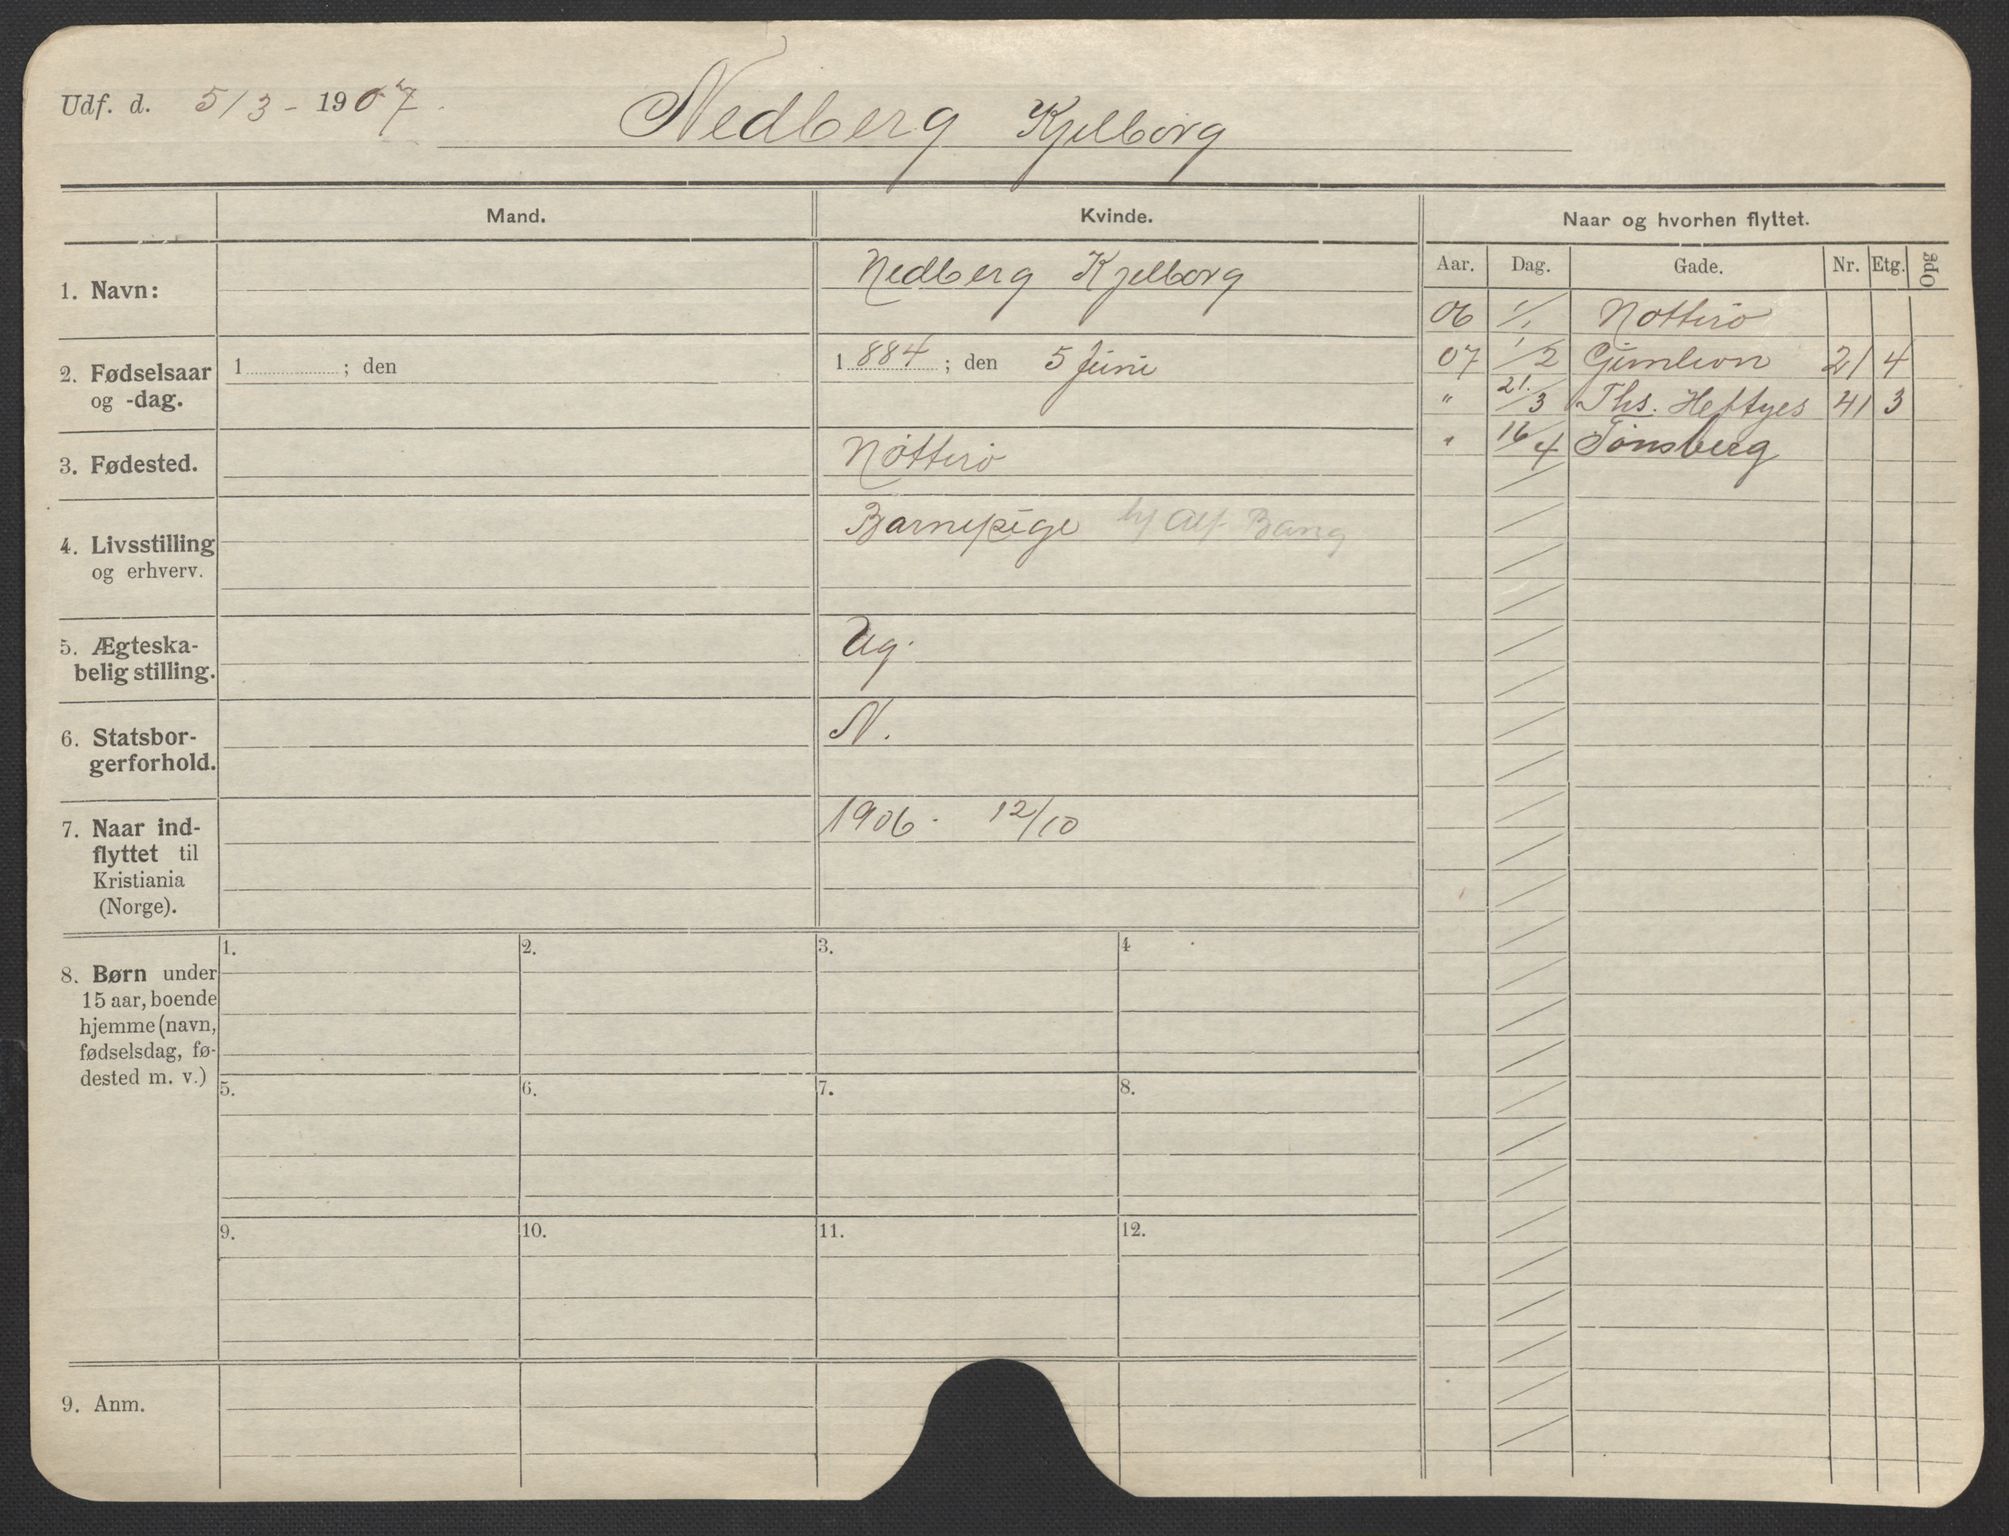 Udf. d. 5/3 - 1907.
Nedberg Kjelborg
Mand.
Kvinde.
Naar og hvorhen flyttet.
Aar. Dag. Gade. Nr. Etg. Opg
1. Navn:
Nedberg Kjelborg
2. Fødselsaar
og -dag.
1 ; den
1884 ; den 5 Juni
3. Fødested.
Nøtterø
4. Livsstilling
og erhverv.
Barnepige hj Alf Bang
5. Ægteska-
belig stilling.
Ug.
6. Statsbor-
gerforhold.
N.
7. Naar ind-
flyttet til
Kristiania
(Norge).
1906. 12/10
06 1/1 Nøtterø
07 1/2 Gimlevn 21 4
" 21/3 Ths. Heftyes 41 3
" 16/4 Tønsberg
8. Børn under
15 aar, boende
hjemme (navn,
fødselsdag, fø-
dested m. v.)
1. 2. 3. 4
5. 6. 7. 8.
9. 10. 11. 12.
9. Anm.